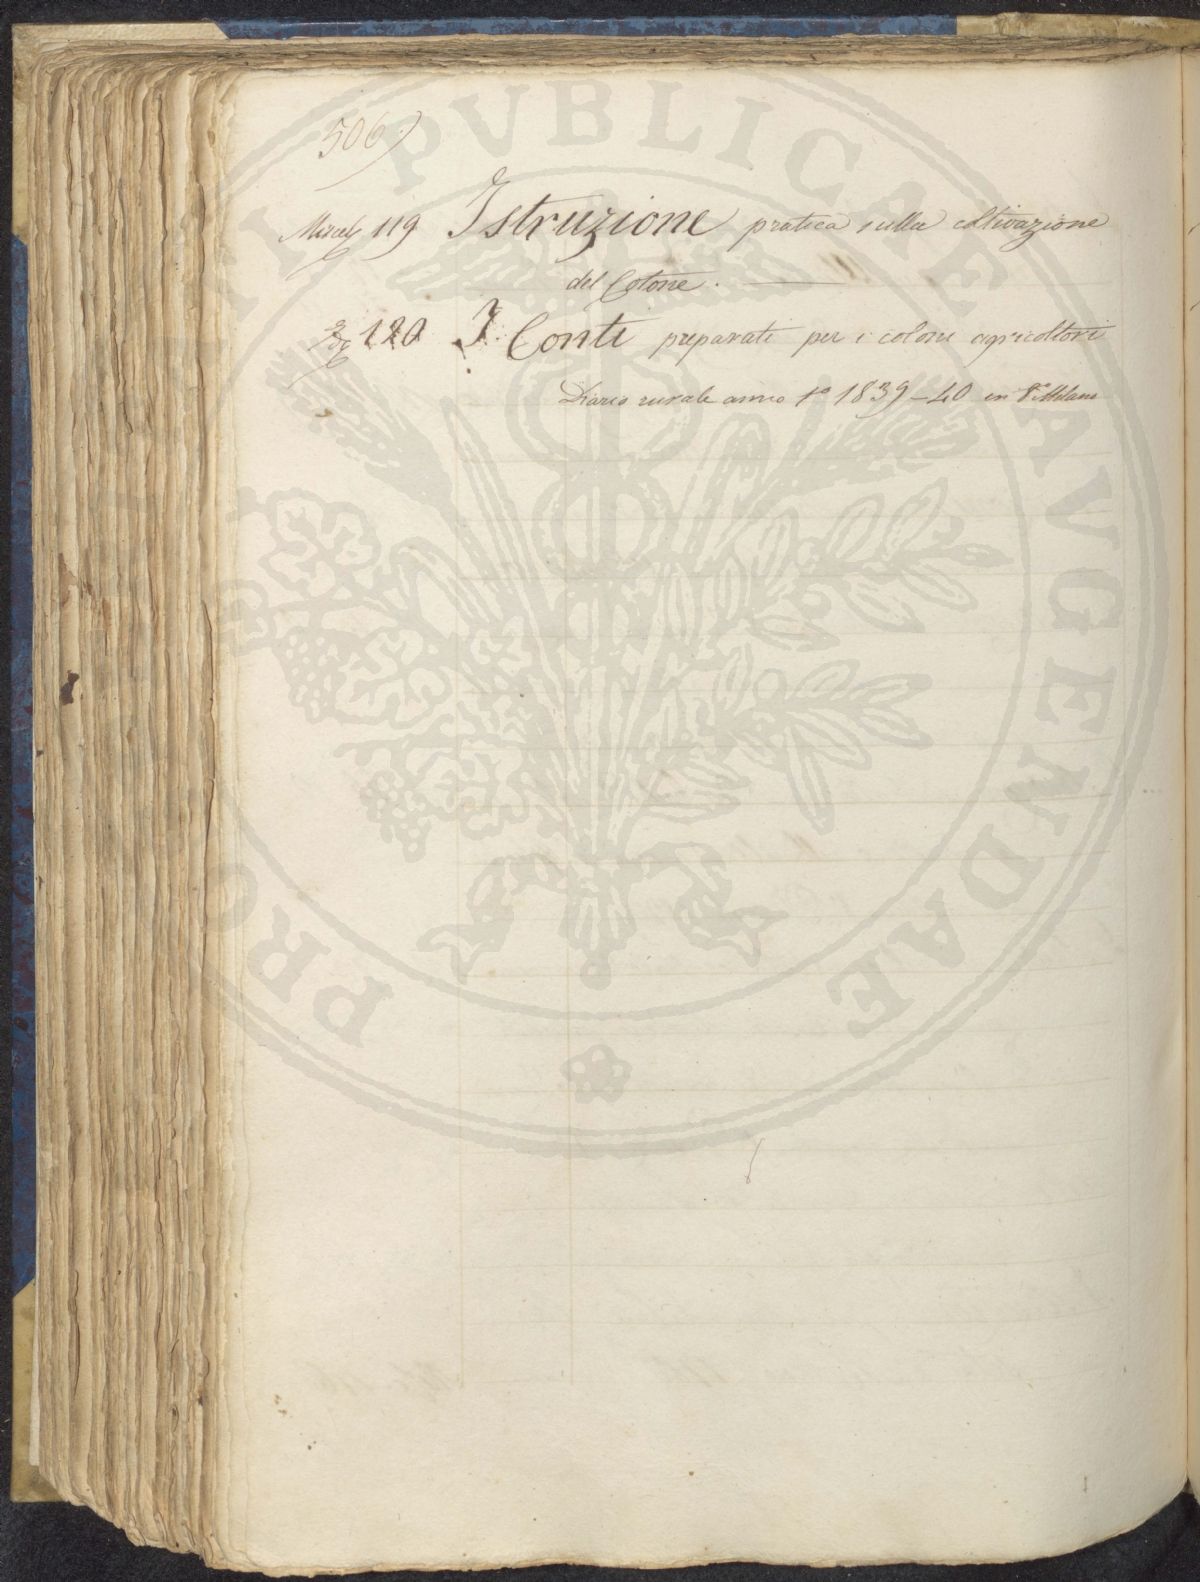 506)
Miscel. 119 Istruzione pratica sulla coltivazione
del Cotone.
120 I. Conti preparati per i coloni agricoltori
Diario rurale anno 1º 1839-40 in 8º Milano
PROSPERITATI PVBLICAE AVGENDAE